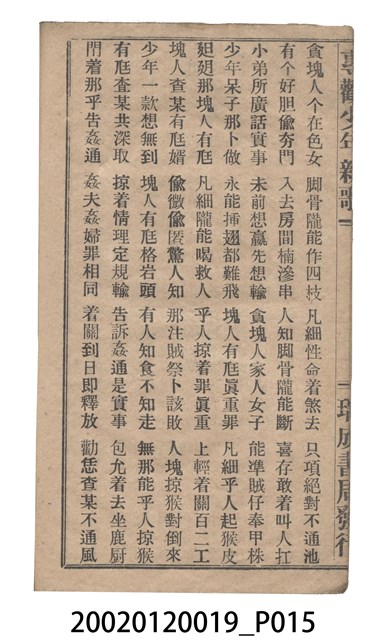 專勸少年新歌
一 瑞成書局發行
貪塊人个在色女 脚骨隴能作四枝 凡細性命着煞去 只項絕對不通池
有个好胆偸夯門 入去房間楠滲串 人知脚骨隴能斷 喜存敢着叫人扛
小弟所廣話實事 未前想贏先想輸 貪塊人家人女子 能準賊仔奉甲株
少年呆子那卜做 永能揷翅都難飛 塊人有尫眞重罪 凡細乎人起猴皮
廻那塊人有尫 凡細隴能喝救人 乎人掠着罪眞重 上輕着關百二工
塊人查某有尫婿 偸微偸匿驚人知 那注賊祭卜該敗 人塊掠猴對倒來
少年一款想無到 塊人有尫格岩頭 有人知食不知走 無那能乎人掠猴
有尫查某共深取 掠着情理定規輸 告訴姦通是實事 包允着去坐鹿厨
閂着那乎告姦通 姦夫姦婦罪相同 着關到日即釋放 勸恁查某不通風
20020120019_P015